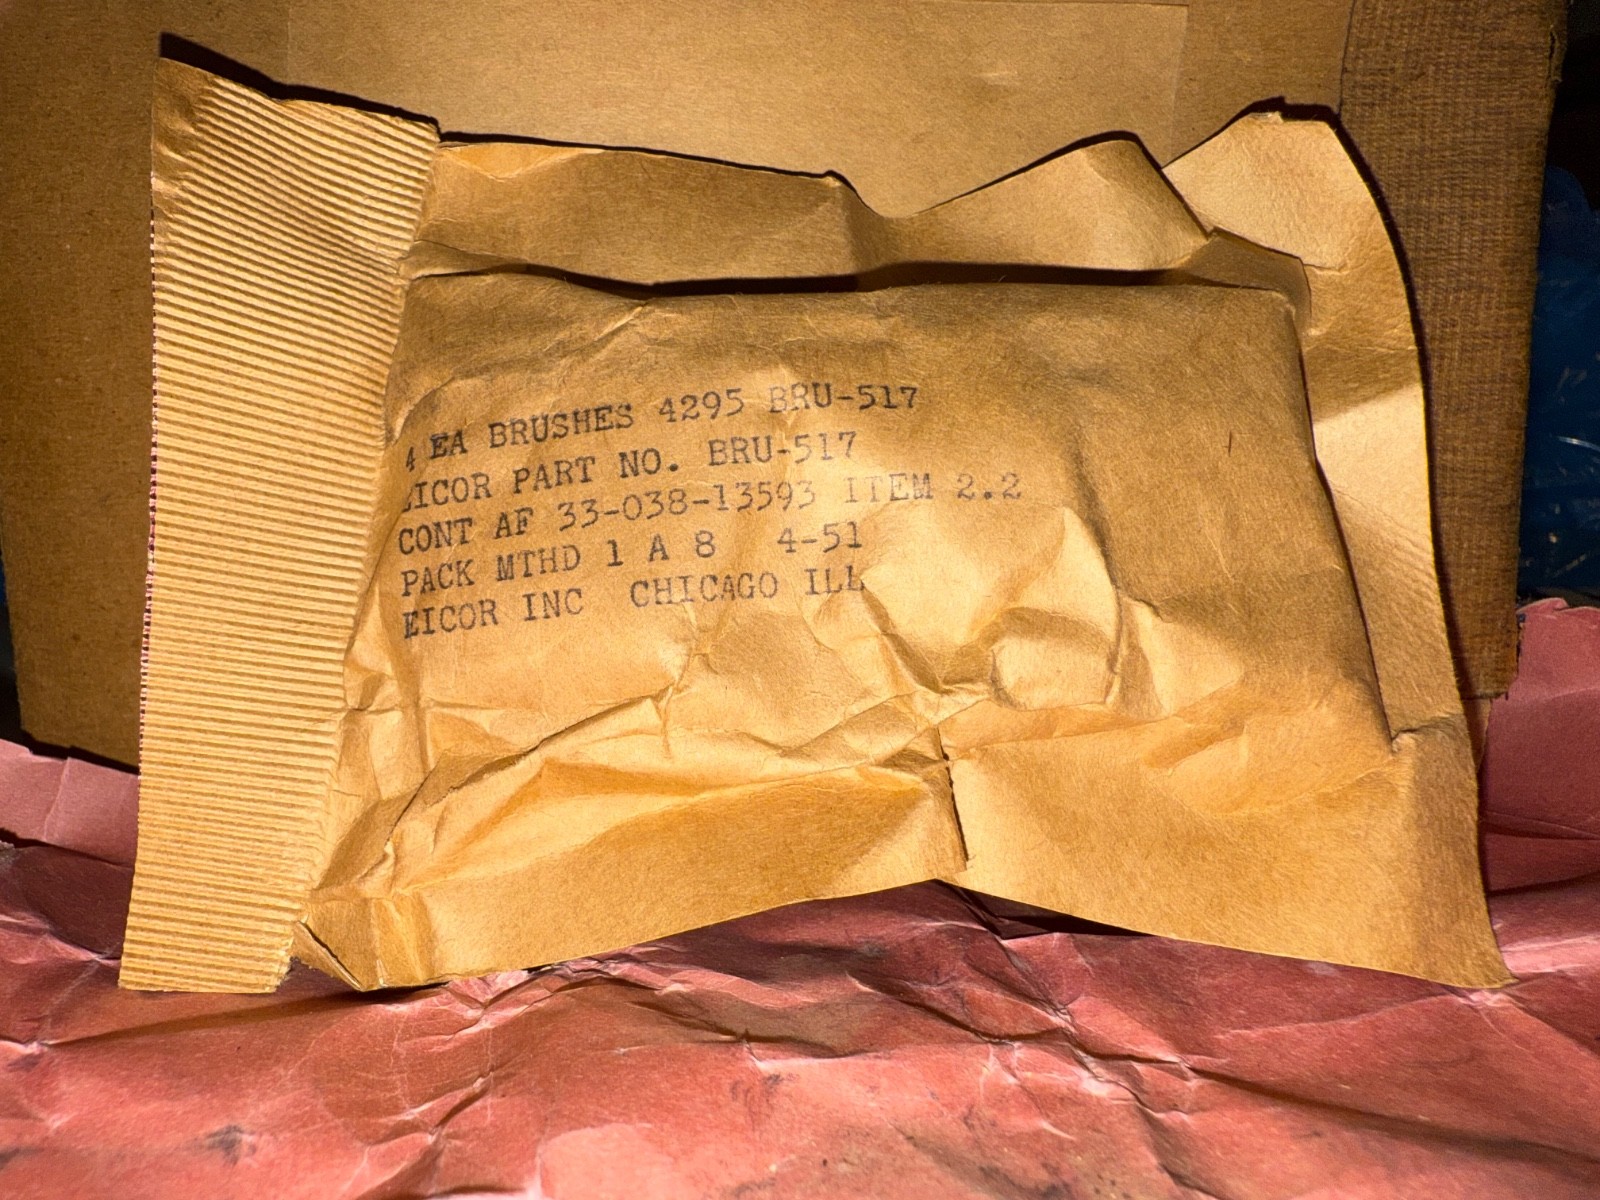 4 EA BRUSHES 4295 BRU-517
EICOR PART NO. BRU-517
CONT AF 33-038-13593 ITEM 2.2
PACK MTHD 1 A 8 4-51
EICOR INC CHICAGO ILL